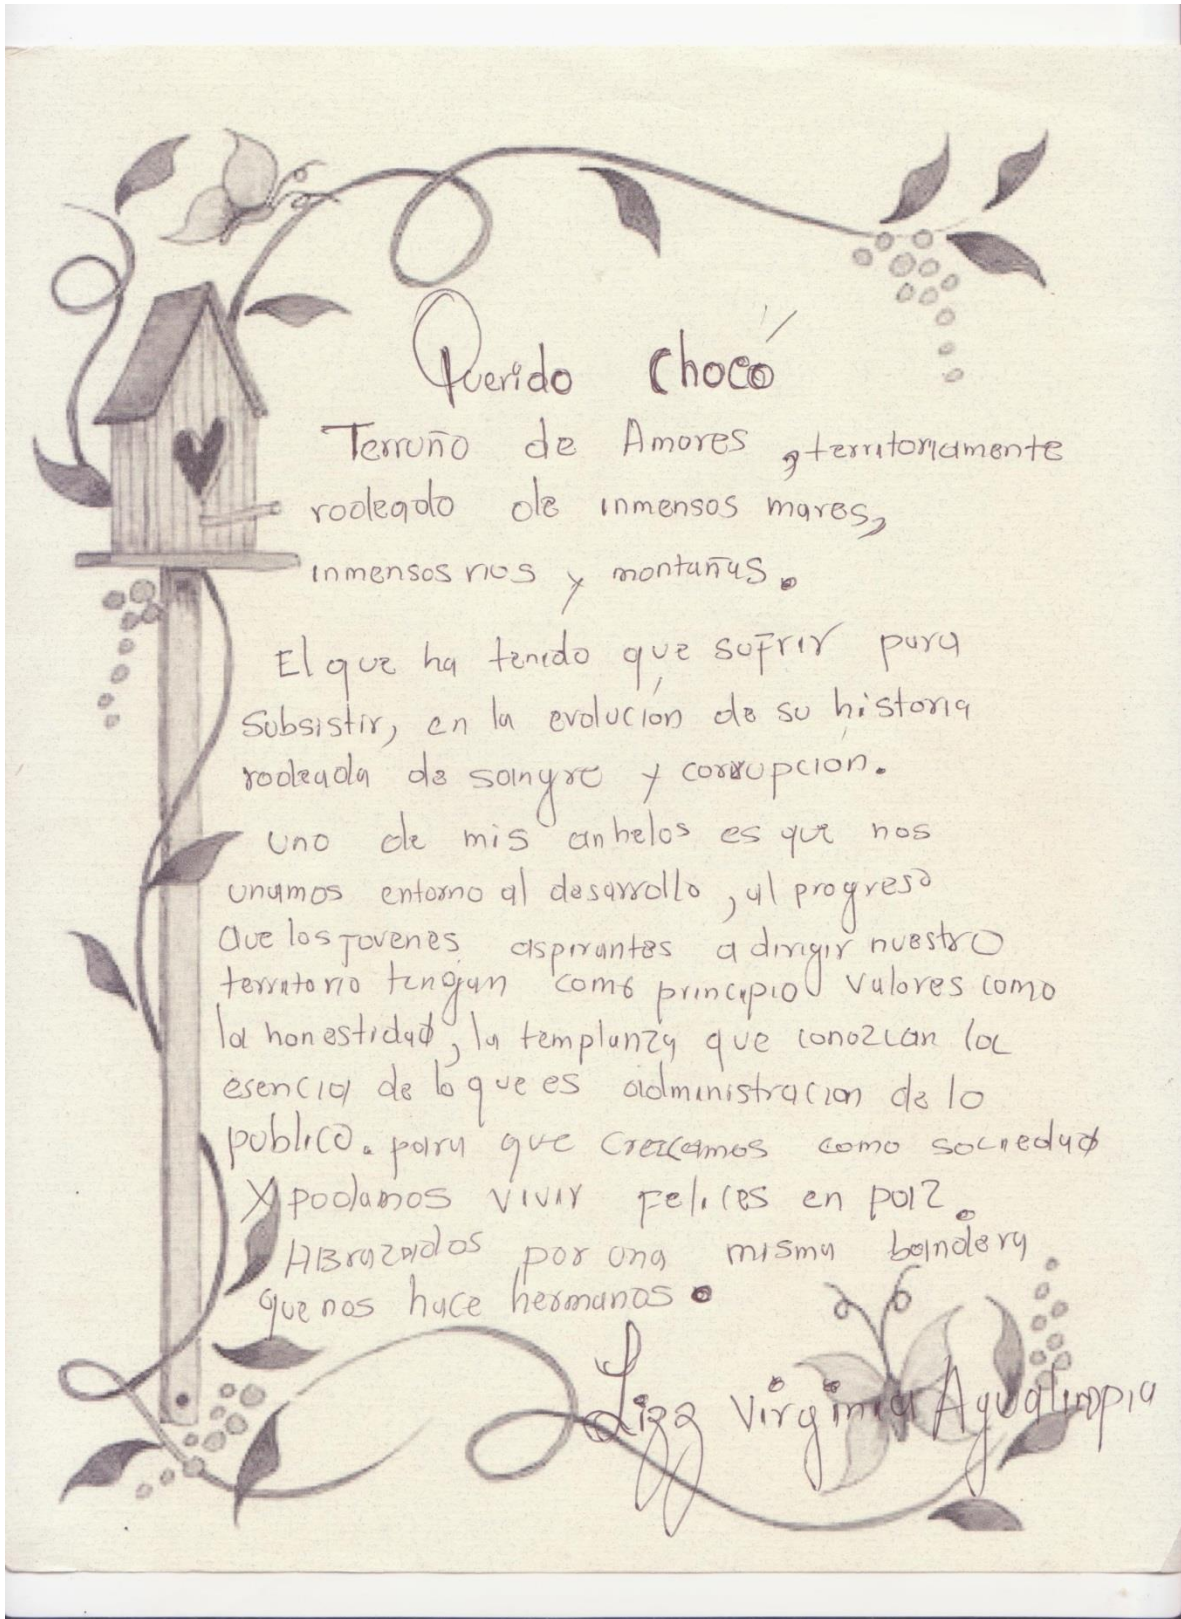 Querido Chocó
Terruño de Amores, territoriamente
rodeado de inmensos mares,
inmensos rios y montañas.
El que ha tenido que sufrir para
Subsistir, en la evolución de su historia
rodeada de sangre y corrupción.
uno de mis anhelos es que nos
unamos entorno al desarrollo, al progreso
que los jovenes aspirantes a dirigir nuestro
territorio tengan como principio valores como
la honestidad, la templanza que conozcan la
esencia de lo que es administracion de lo
publico. para que crezcamos como sociedad
y podamos vivir felices en paz.
ABrazados por una misma bandera
que nos hace hermanos.
Lizz Virginia Agualimpia